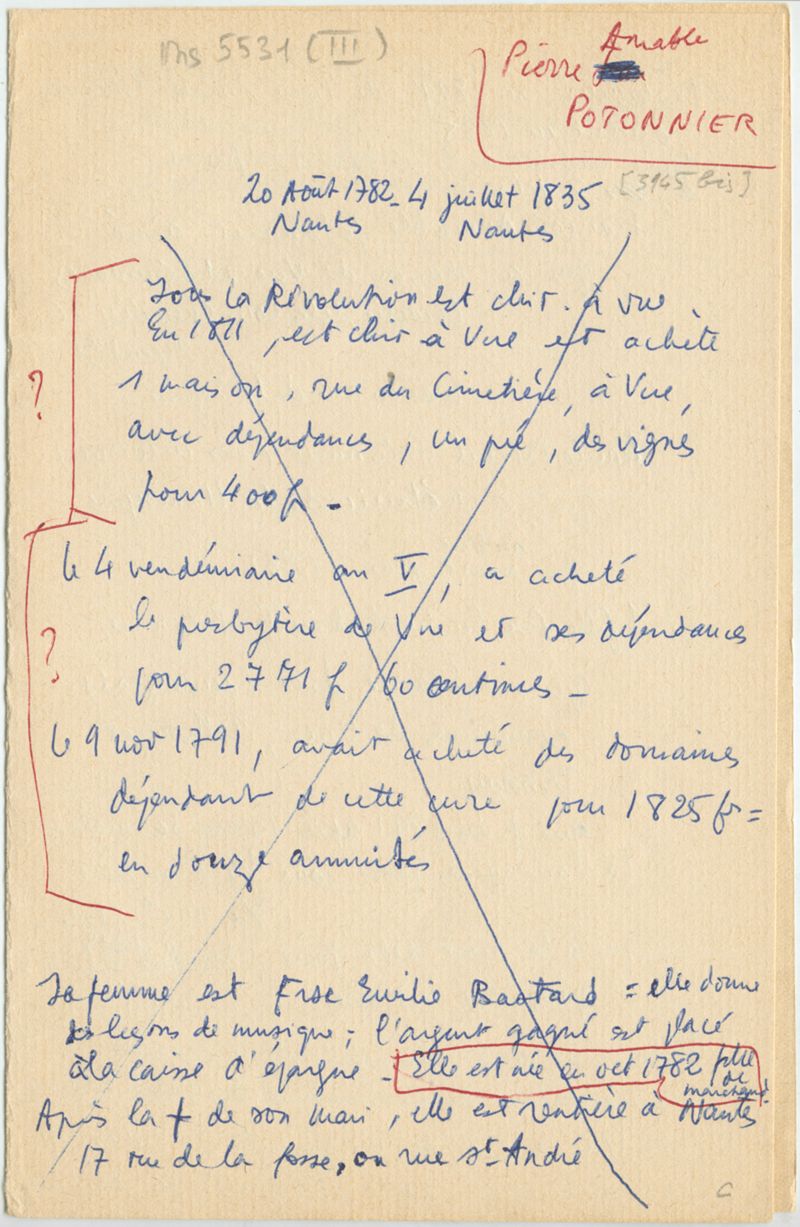 Ms 5531 (III)
Pierre Amable
POTONNIER
[3945 bis]
20 Août 1782 - 4 juillet 1835
Nantes Nantes
Sous la Révolution est chir. à Vue.
En 1811, est chir à Vue et achète
1 maison, rue du Cimetière, à Vue,
avec dépendances, un pré, des vignes
pour 400 f -
?
le 4 vendémiaire an V, a acheté
le presbytère de Vue et ses dépendances
pour 2771 f 60 centimes -
?
le 9 nov 1791, avait acheté des domaines
dépendant de cette cure pour 1825 fr =
en douze annuités
Sa femme est Frse Emilie Bastard = elle donne
des leçons de musique ; l'argent gagné est placé
à la caisse d'épargne - Elle est née en oct 1782 fille
de marchand.
Après la † de son mari, elle est rentière à Nantes
17 rue de la fosse, ou rue St-André
C